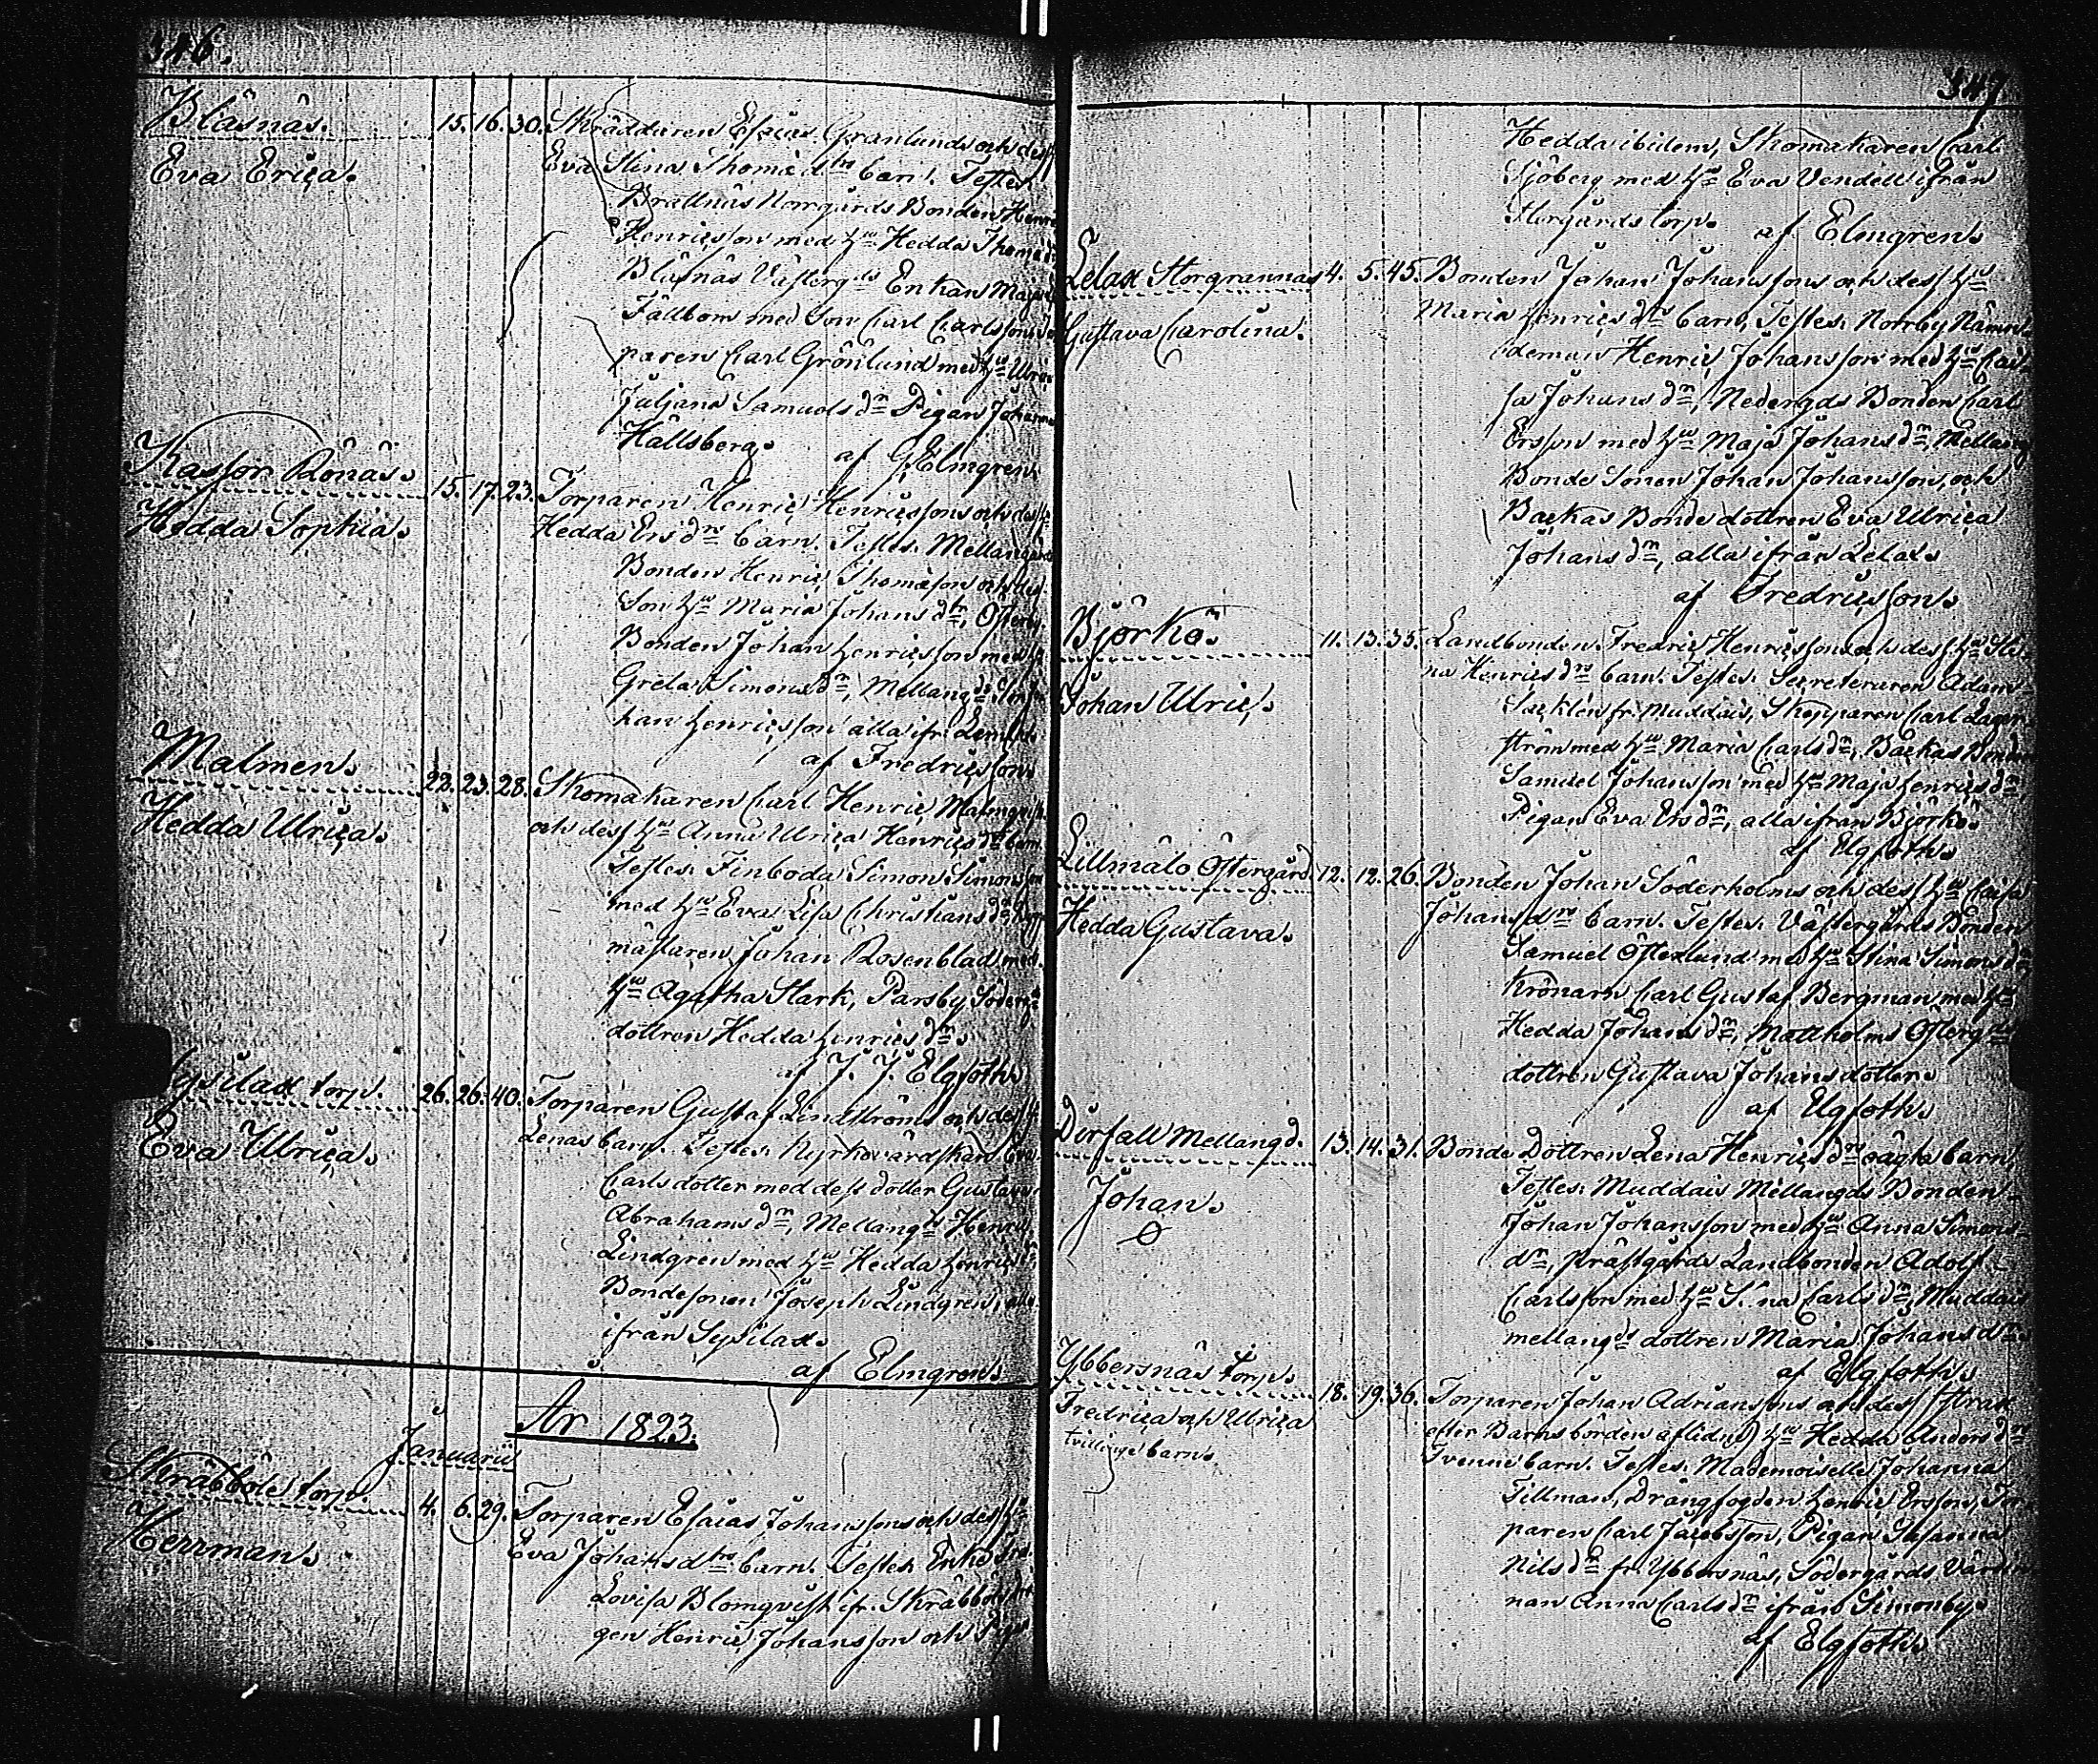 346.
Blåsnäs. 15. 16. 30. Skräddaren Esaias Granlunds och dess
Eva Erica. Eva Stina Thomæ dtrs barn. Testes
Brattnäs Norrgårds Bonden Henric
Henricsson med Hu Hedda Thomæ dr
Blåsnäs Västergds Enkan Maja
Fällbom med Son Carl Carlsson
paren Carl Grönlund med Hu Ulrica
Juliana Samuels dr Pigan Johanna
Hällsberg.
af G. Elmgren.
Kassor Rönäs. 15. 17. 23. Torparen Henric Henricssons och dess
Hedda Sophia. Hedda Ers drs barn. Testes. Mellangårds
Bonden Henric Thomæson och des
Son Hu Maria Johans dtr, Österby
Bonden Johan Henricsson med
Greta Simons dr, Mellangds
han Henricsson alla ifr.
af Fredricsson.
Malmen. 22. 23. 28. Skomakaren Carl Henric Malmqvists
Hedda Ulrica. och dess Hu Anna Ulrica Henrics drs barn.
Testes. Finboda Simon Simonsson
med Hu Eva Lisa Christians dr
mästaren Johan Rosenblad med
Hu Agatha Stark, Parsby Söderg
dottren Hedda Henrics dr.
af J. J. Elgfoth.
Sysilax torp. 26. 26. 40. Torparen Gustaf Lindströms och dess
Eva Ulrica. Lenas barn. Testes. Kyrkovärdskan Eva
Carls dotter med dess dotter Gustava
Abrahams dr, Mellangds Henric
Lindgren med Hu Hedda Henrics
Bondesonen Joseph Lindgren, alla
ifrån Sysilax.
af Elmgren.
År 1823.
Januarii
Skräbböle torp. 4. 6. 29. Torparen Esaias Johanssons och dess Hu
Herrman. Eva Johans dtrs barn. Testes Enke
Lovisa Blomqvist ifr. Skräbböle
gen Henric Johansson och Pigan
347.
Hedda ibidem, Skomakaren Carl
Sjöberg med Hu Eva Vendell ifrån
Storgårds torp. af Elmgren.
Lelax Storgrannas 4. 5. 45. Bonden Johan Johanssons och dess Hu
Gustava Carolina. Maria Henrics dtrs barn, Testes. Norrby Nämn-
deman Henric Johansson med Hu Cai-
sa Johans dr, Nedergds Bonden Carl
Ersson med Hu Maja Johans dr, Mellang
Bonde Sonen Johan Johansson, och
Backas Bonde dottren Eva Ulrica
Johans dr, alla ifrån Lelax.
af Fredricsson.
Björkö. 11. 13. 35. Landbonden Fredric Henricssons och dess Hu Sti-
Johan Ulric. na Henrics drs barn. Testes. Secreteraren Adam
Sacklén fr. Muddais, Skepparen Carl Lager-
ström med Hu Maria Carls dr, Backas Bonden
Samuel Johansson med Hu Maja Henrics dr
Pigan Eva Ers dr, alla ifrån Björkö.
af Elgfoth.
Lillmälo Östergård. 12. 12. 26. Bonden Johan Söderholms och dess Hu Caisa
Hedda Gustava. Johans drs barn. Testes. Västergårds Bonden
Samuel Österlund med Hu Stina Simons dr
Krönarn Carl Gustaf Bergman med Hu
Hedda Johans dr, Mattholms Östergds
dottren Gustava Johans dotter.
af Elgfoth.
Dirfall Mellangd. 13. 14. 31. Bonde Dottren Lena Henrics drs oägta barn,
Johan. Testes. Muddais Mellangds Bonden
Johan Johansson med Hu Anna Simons
dr, prästgårds Landbonden Adolf
Carlsson med Hu S. na Carls dr, Muddais
mellangds dottren Maria Johans dr.
af Elgfoth.
Ybbersnäs torp. 18. 19. 36. Torparen Johan Adrianssons och dess (strax
Fredrica och Ulrica efter Barnsbörden aflidna) Hu Hedda Anders drs
tvillinge barn. Tvenne barn. Testes. Mademoiselle Johanna
Tillman, Drängfogden Henric Ersson, Tor-
paren Carl Jacobsson, Pigan Susanna
Nils dr fr. Ybbersnäs, Södergårds Värdin-
nan Anna Carls dr ifrån Simonby.
af Elgfoth.